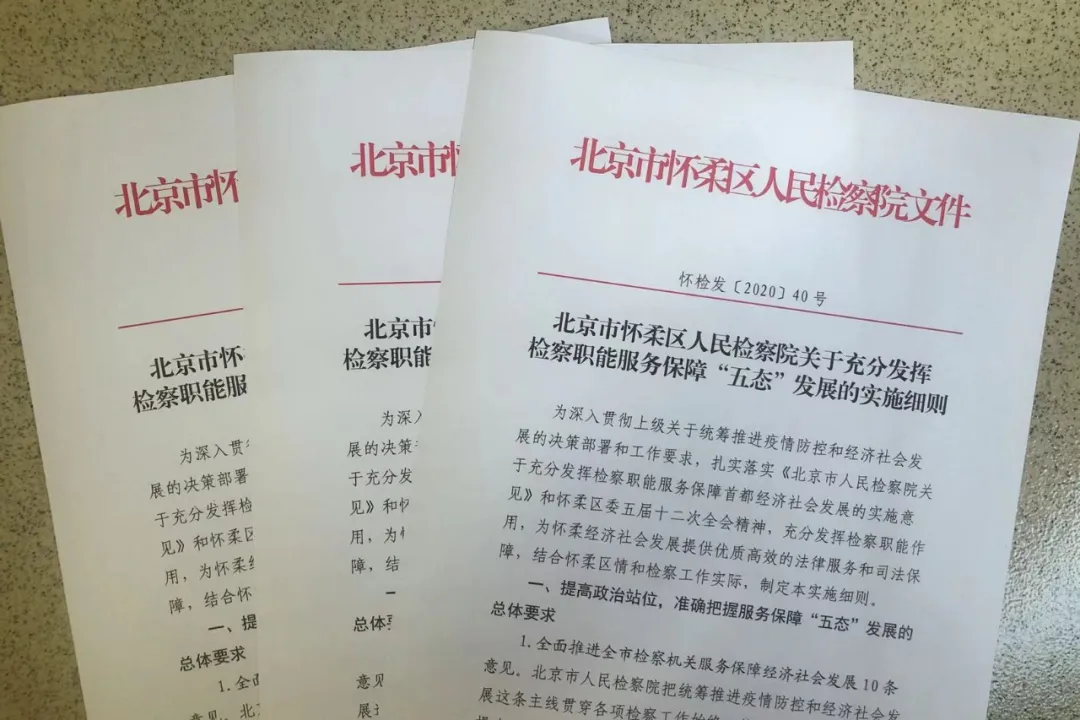 北京市怀
北京市怀
检察职能服
为深入贯
展的决策部署
于充分发挥检
见》和怀柔区
用，为怀柔经
障，结合怀
一、提
总体要求
1.全面
意见。北京
北京市怀
北京市
检察职能
为深入
展的决策部署
于充分发挥
见》和怀
用，为
障，结
总体要
意见
展
北京市怀柔区人民检察院文件
怀检发〔2020〕40号
北京市怀柔区人民检察院关于充分发挥
检察职能服务保障“五态”发展的实施细则
为深入贯彻上级关于统筹推进疫情防控和经济社会发
展的决策部署和工作要求，扎实落实《北京市人民检察院关
于充分发挥检察职能服务保障首都经济社会发展的实施意
见》和怀柔区委五届十二次全会精神，充分发挥检察职能作
用，为怀柔经济社会发展提供优质高效的法律服务和司法保
障，结合怀柔区情和检察工作实际，制定本实施细则。
一、提高政治站位，准确把握服务保障“五态”发展的
总体要求
1.全面推进全市检察机关服务保障经济社会发展10条
意见。北京市人民检察院把统筹推进疫情防控和经济社会发
展这条主线贯穿各项检察工作始终